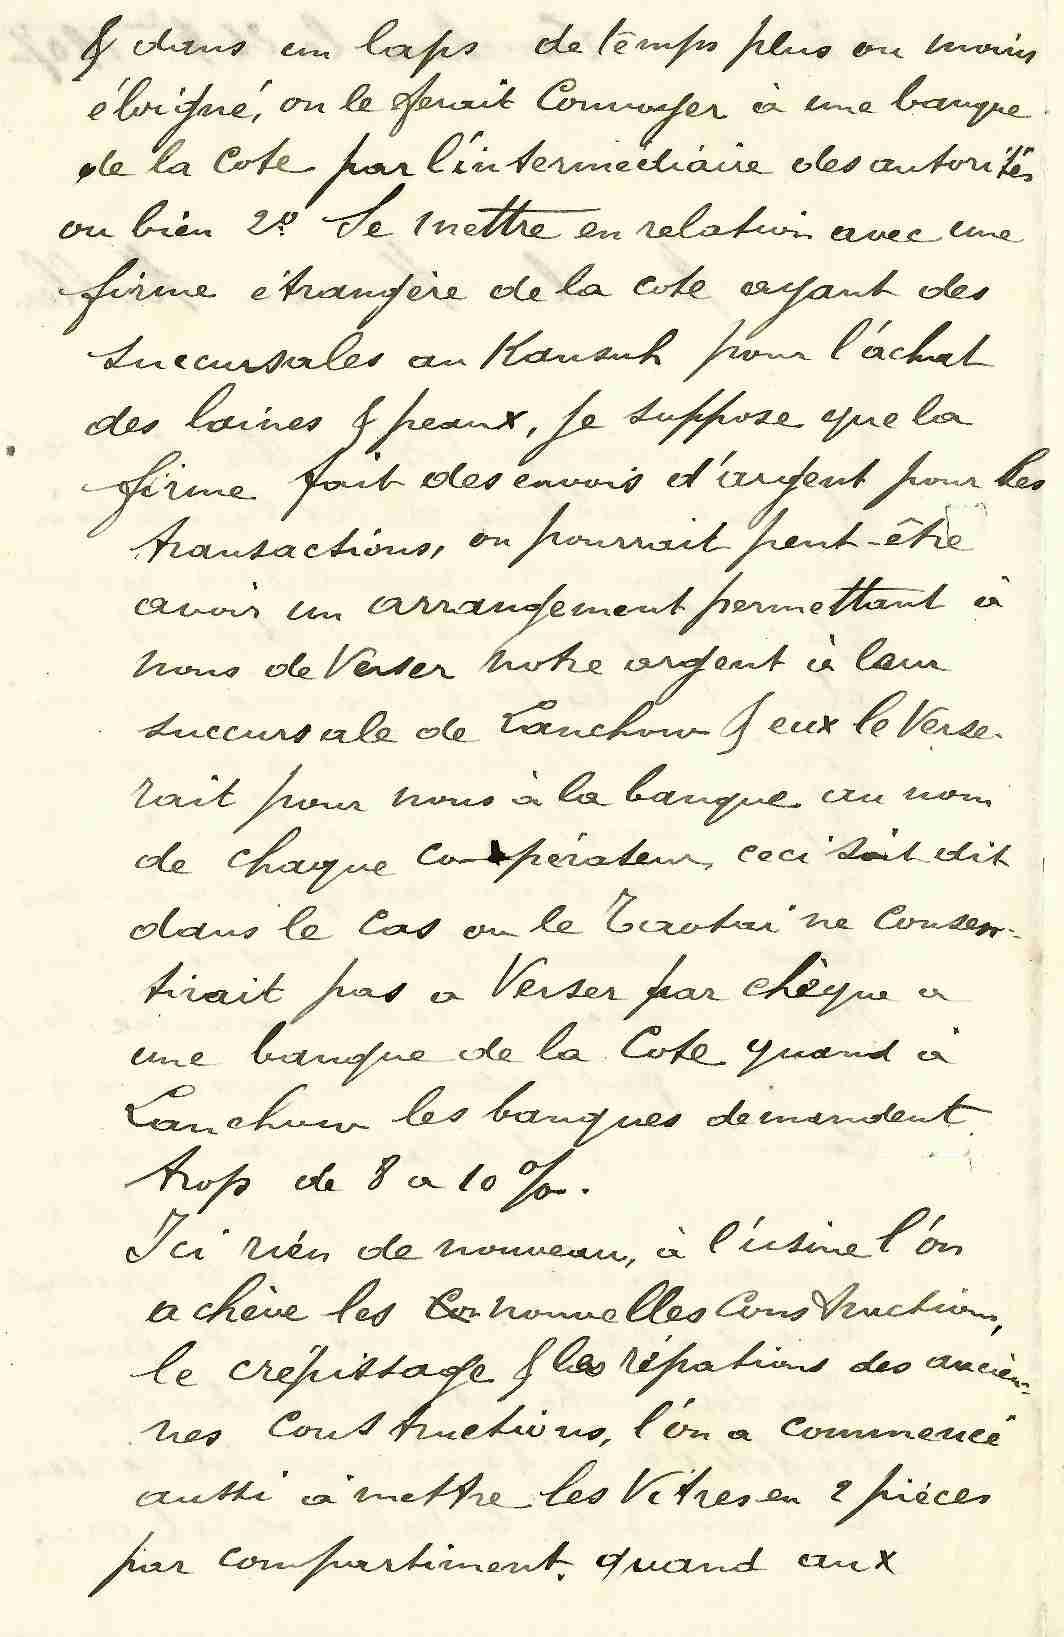 & dans un laps de temps plus ou moins
éloigné, on le ferait Convoyer à une banque
de la Cote par l'intermédiaire des autorités
ou bien 2º. Se mettre en relation avec une
firme étrangère de la cote ayant des
succursales au Kansuh pour l'achat
des laines & peaux, je suppose que la
firme fait des envois d'argent pour les
transactions, on pourrait peut-être
avoir un arrangement permettant à
nous de Verser notre argent à leur
succursale de Lanchow & eux le Verse-
rait pour nous à la banque au nom
de chaque coopérateur, ceci soit dit
dans le Cas ou le Taotai ne Consen-
tirait pas a Verser par chèque a
une banque de la Cote quand à
Lanchow les banques demandent
trop de 8 a 10 %.
Ici rien de nouveau, à l'usine l'on
achève les Con nouvelles Constructions,
le crépissage & les répations des ancien-
nes Constructions, l'on a commencé
aussi à mettre les Vitres en 2 pièces
par compartiment. quand aux